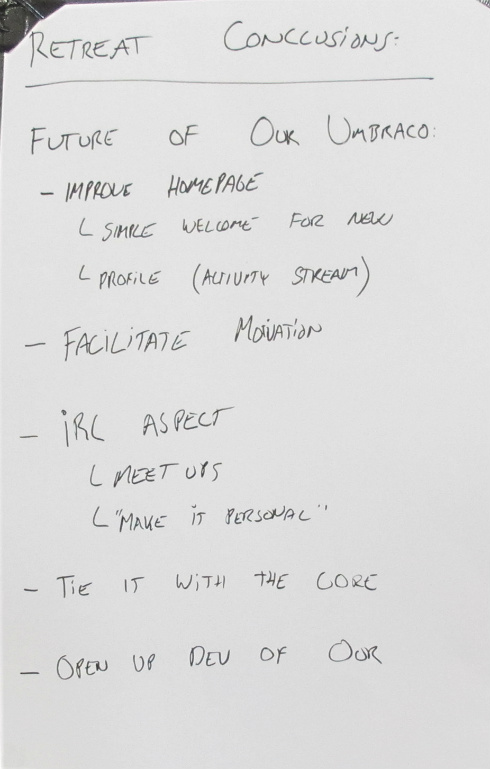 RETREAT CONCLUSIONS:
FUTURE OF OUR UMBRACO:
- IMPROVE HOMEPAGE
└ SIMPLE WELCOME FOR NEW
└ PROFILE (ACTIVITY STREAM)
- FACILITATE MOTIVATION
- IRL ASPECT
└ MEET UPS
└ "MAKE IT PERSONAL"
- TIE IT WITH THE CORE
- OPEN UP DEV OF OUR